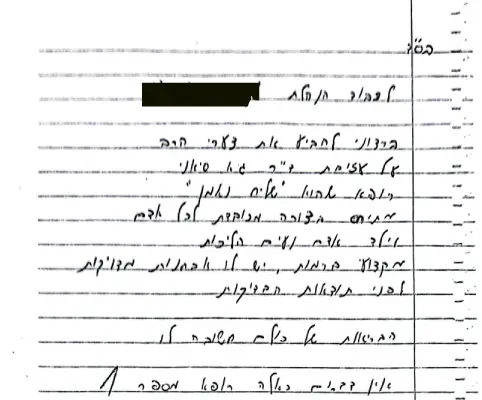 בס"ד
לכבוד הנהלת
ברצוני להביע את צערי הרב
על עזיבת ד"ר גיא סיאני
רופא שהוא "שליח נאמן"
מתיחס בצורה מכובדת לכל אדם
וילד אדם נעים הליכות
מקצועי ברמות, יש לו אבחנות מדויקות
לפני תוצאות הבדיקות
הבריאות של כולם חשובה לו
אין דברים כאלה רופא מספר 1